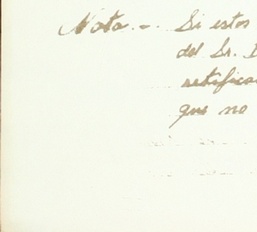 Nota.-. Si estos
del Sr. D
retifica
que no